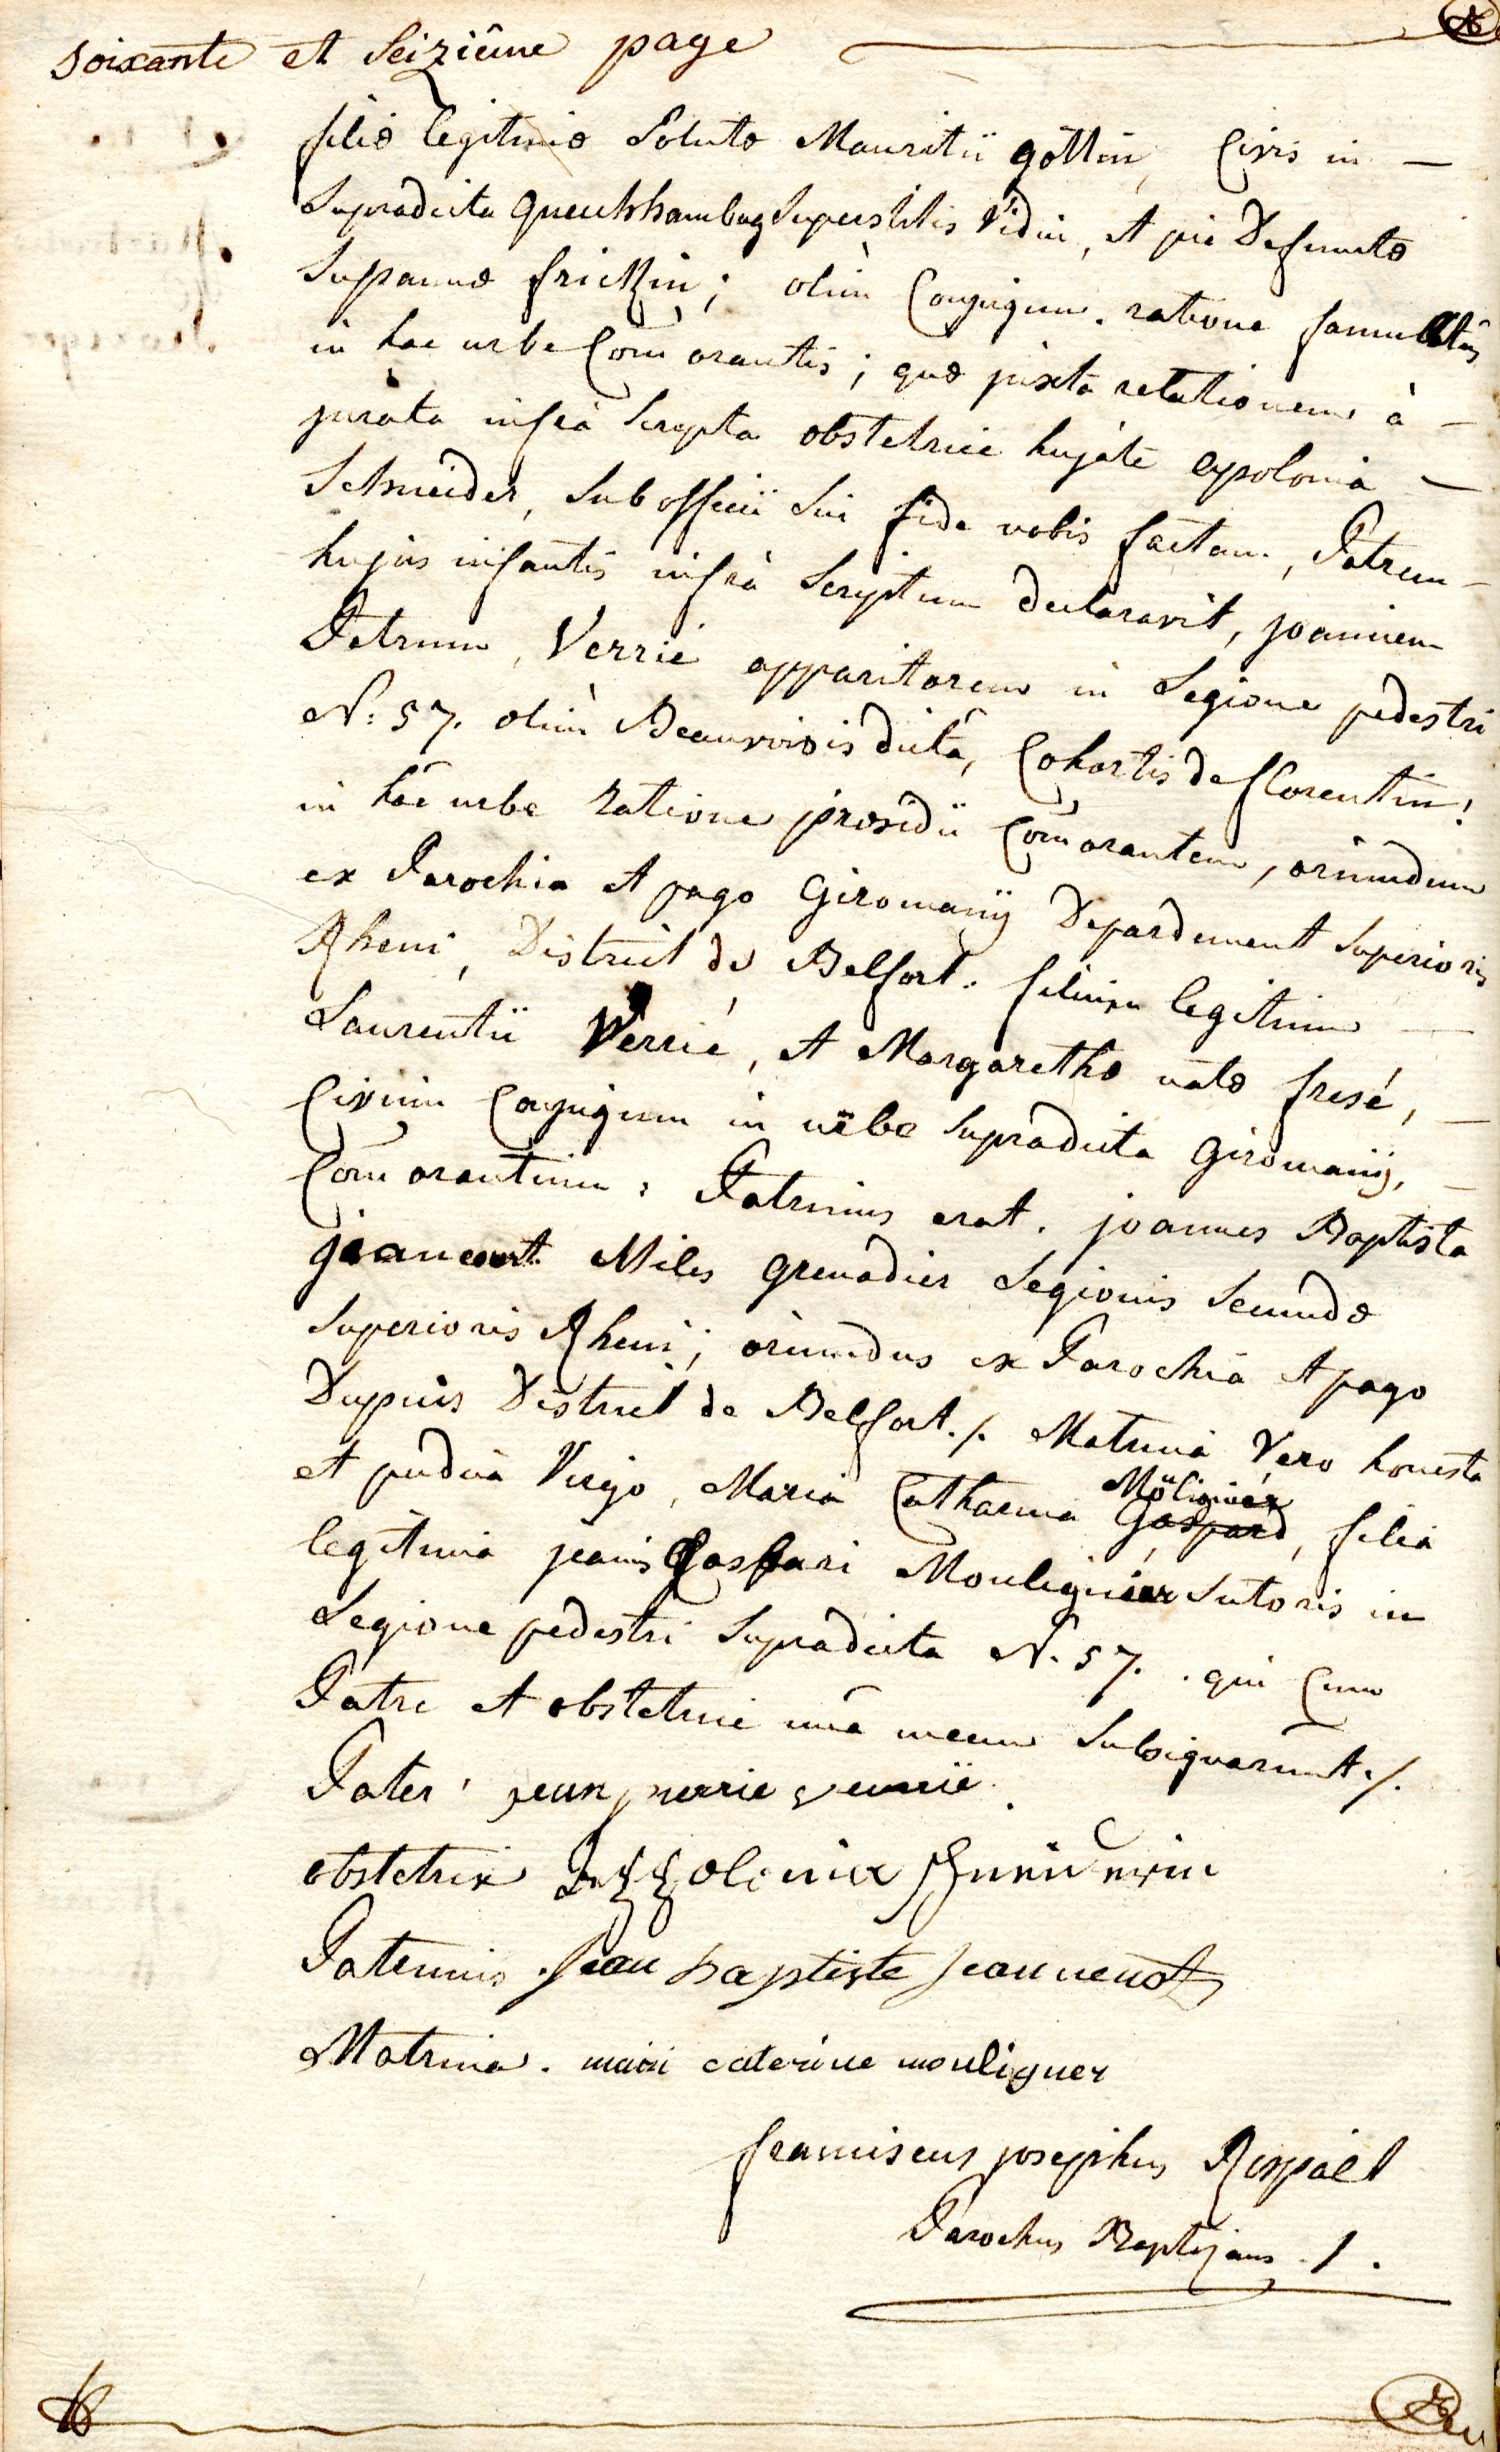 soixante et Seiziême page
filiæ legitimæ Solutæ Mauritii göttin, Civis in —
Supradicta queuckhambag Superstitis Vidui, et piè Defunctæ
Susannæ fricKin; olim Conjugum. ratione famulatûs
in hac urbe Com̃orantis; quæ juxta relationem à —
jurata infrà Scripta obstetrice hujate apolonia —
Schneider, Sub officii Sui fide nobis factam, Patrem —
hujus infantis infrà Scriptum declaravit, joannem
Petrum, Verrié apparitorem in Legione pedestri
N: 57. olim Beauvoisis dictâ, Cohortis de florentin!
in hac urbe ratione præsidii Com̃orantem, oriundum
ex Parochia et pago Giromanÿ Departement Superioris
Rheni, District de Belfort. filium legitimum —
Laurentii Verrié, et Margarethæ natæ fresé, —
Civium Conjugum in urbe Supradicta Giromanÿ, —
Com̃orantium: Patrinus erat. joannes Baptista
jeancourt Miles grenadier Legionis Secundæ
Superioris Rheni; oriundus ex Parochia et pago
Dupuis District de Belfort./. Matrina Vero honesta
et pudica Virgo, Maria Catharina Möliginér Gaspard, filia
legitima joanis Caspari Moulignier Sutoris in
Legione pedestri Supradicta N. 57. . qui Cum
Patre et obstetrice unà mecum Subsignarunt./.
Pater jean pierrie verrië.
obstetrix Appolonia Schneiderin
Patrinus. Jean baptiste Jeannenot
Matrina. mari caterine mouligner
franciscus josephus Rispält
Parochus Baptizans ./.